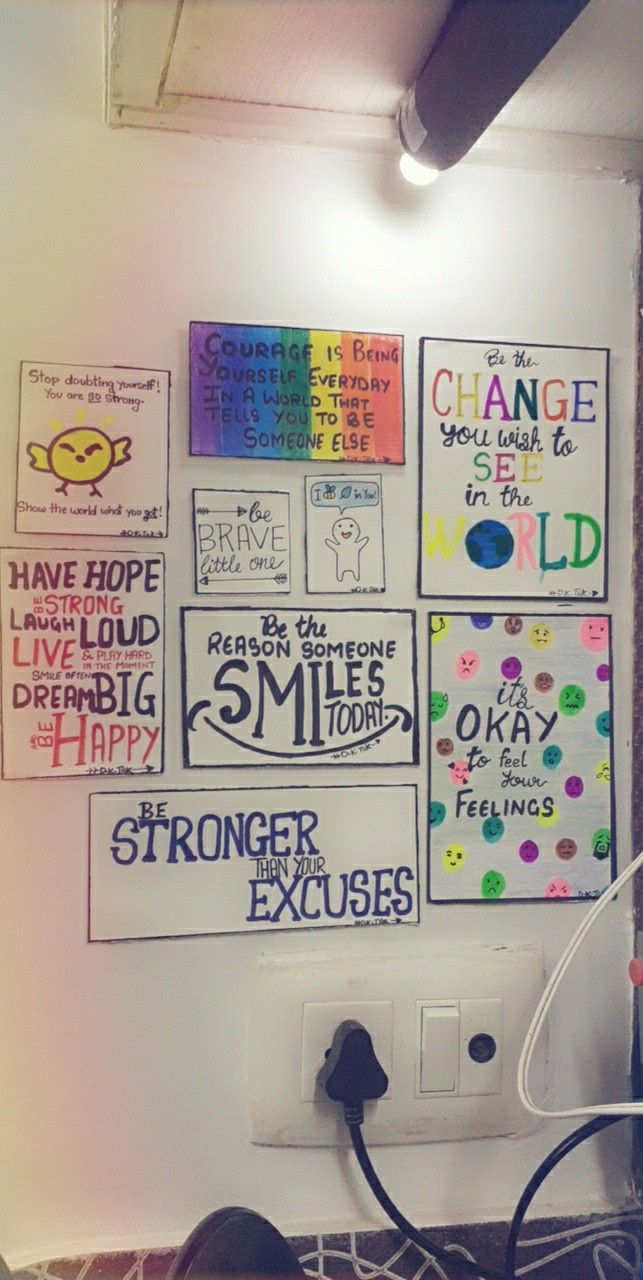 Stop doubting yourself!
You are so strong.
Show the world what you got!
COURAGE IS BEING
YOURSELF EVERYDAY
IN A WORLD THAT
TELLS YOU TO BE
SOMEONE ELSE
Be the
CHANGE
you wish to
SEE
in the
WORLD
be
BRAVE
little one
I in You!
HAVE HOPE
BE STRONG
LAUGH LOUD
LIVE & PLAY HARD
IN THE MOMENT
SMILE OFTEN
DREAM BIG
AND BE HAPPY
Be the
REASON SOMEONE
SMILES
TODAY.
it's
OKAY
to feel
your
FEELINGS
BE
STRONGER
THAN YOUR
EXCUSES